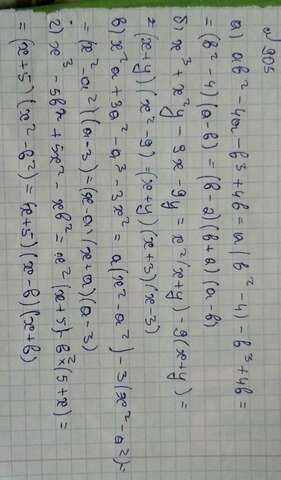 № 905
а) ав² - 4а - в³ + 4в = а(в² - 4) - в³ + 4в =
= (в² - 4)(а - в) = (в - 2)(в + 2)(а - в)
б) x³ + x²y - 9x - 9y = x²(x + y) - 9(x + y) =
= (x + y)(x² - 9) = (x + y)(x + 3)(x - 3)
в) x²a + 3a² - a³ - 3x² = a(x² - a²) - 3(x² - a²) =
= (x² - a²)(a - 3) = (x - a)(x + a)(a - 3)
г) x³ - 5в² + 5x² - xв² = x²(x + 5) - в²(5 + x) =
= (x + 5)(x² - в²) = (x + 5)(x - в)(x + в)